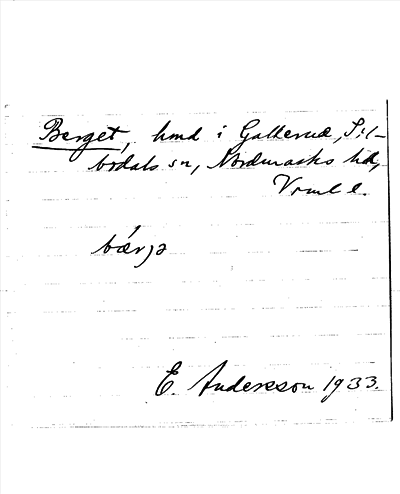 Berget, hmd i Gallerud, Sil-
bodals sn, Nordmarks hd,
Vrml l.
bærjə
E. Andersson 1933.